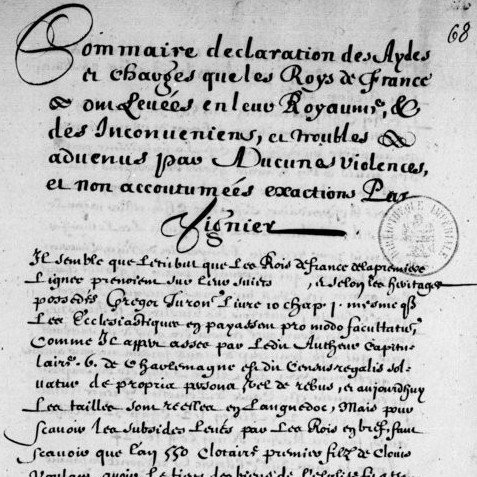 68
Sommaire declaration des Aydes
et charges que les Roys de France
ont Levées en leur Royaume, &
des Inconveniens, et troubles
advenus par Aucunes violences,
et non accoutumées exactions Par
Vignier
Il semble que le tribut que Les Rois de france de la premiere
Lignee prenoient sur leurs suiets, et selon les heritages
possedés Gregor Turon. Livre 10 chap 1. mesme q̃
Les Ecclesiastiques en payassent pro modo facultatum
Comme Il appert assez par Ledit Autheur Capitu-
laire. 6. de Charlemagne est dit Census regalis sol-
vatur de propria persona vel de rebus, et aujourdhuy
Les tailles sont reelles en Languedoc, Mais pour
scavoir les subsides Levés par Les Rois en bref faut
scavoir que Lan 550 Clotaire premier filz de Clovis